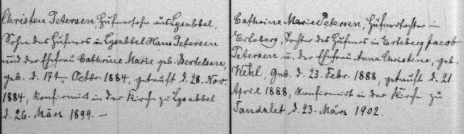 Christen Petersen, Hufnersohn aus Lysabbel,
Sohn des Hufners in Lysabbel Hans Petersen
und der Ehefrau Cathrine Marie geb. Bertelsen,
geb. d. 17t. Octbr 1884, getauft d. 28. Nov
1884, konfirmiert in der Kirche zu Lysabbel
d. 26. März 1899. —
Cathrine Marie Petersen, Hufnertochter in
Erteberg, Tochter des Hufners in Erteberg Jacob
Petersen u. der Ehefrau Anna Christine, geb.
geb. d. 23. Febr. 1888, getauft d. 21.
April 1888, konfirmiert in der Kirche zu
Tandslet d. 23. März 1902.